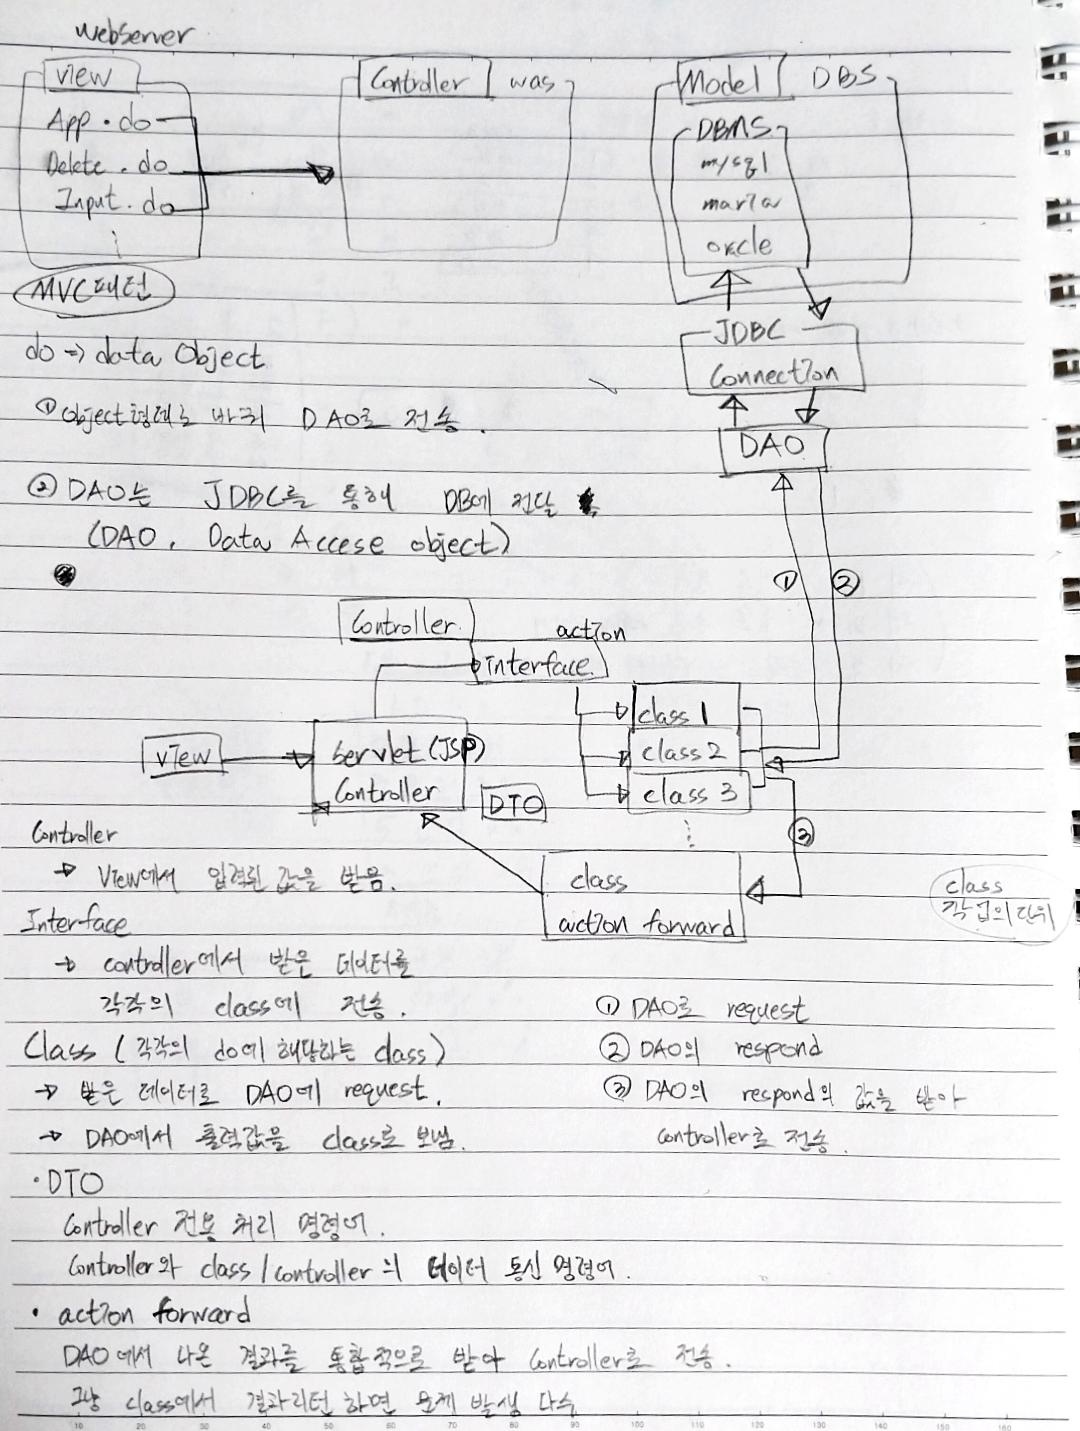 Webserver
View
App . do
Delete . do
Input . do
Controller was
Model DBS
DBMS
mysql
maria
orcle
MVC패턴
JDBC
Connection
DAO
do => data Object
① Object형태로 바꿔 DAO로 전송.
② DAO는 JDBC를 통해 DB에 전달
(DAO, Data Accese object)
① ②
Controller
action
interface
View
Servlet (JSP)
Controller
DTO
class 1
class 2
class 3
③
class
action forward
class
각각의 단위
Controller
→ View에서 입력된 값을 받음.
Interface
→ controller에서 받은 데이터를
각각의 class에 전송.
Class (각각의 do에 해당하는 class)
→ 받은 데이터로 DAO에 request.
→ DAO에서 출력값을 class로 보냄.
① DAO로 request
② DAO의 respond
③ DAO의 respond의 값을 받아
controller로 전송.
· DTO
Controller 전용 처리 명령어.
Controller와 class / controller의 데이터 통신 명령어.
· action forward
DAO에서 나온 결과를 통합적으로 받아 Controller로 전송.
그냥 class에서 결과리턴 하면 문제 발생 다수
10 20 30 40 50 60 70 80 90 100 110 120 130 140 150 160